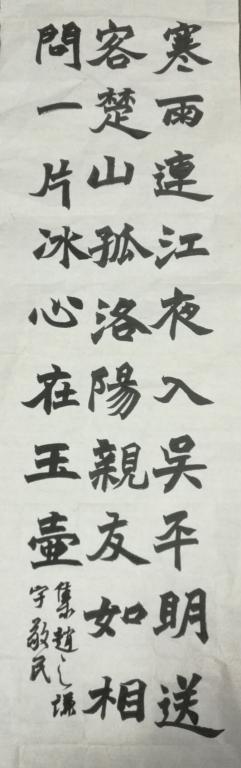 寒雨連江夜入吳平明送
客楚山孤洛陽親友如相
問一片冰心在玉壺
集趙之謙
字敬民